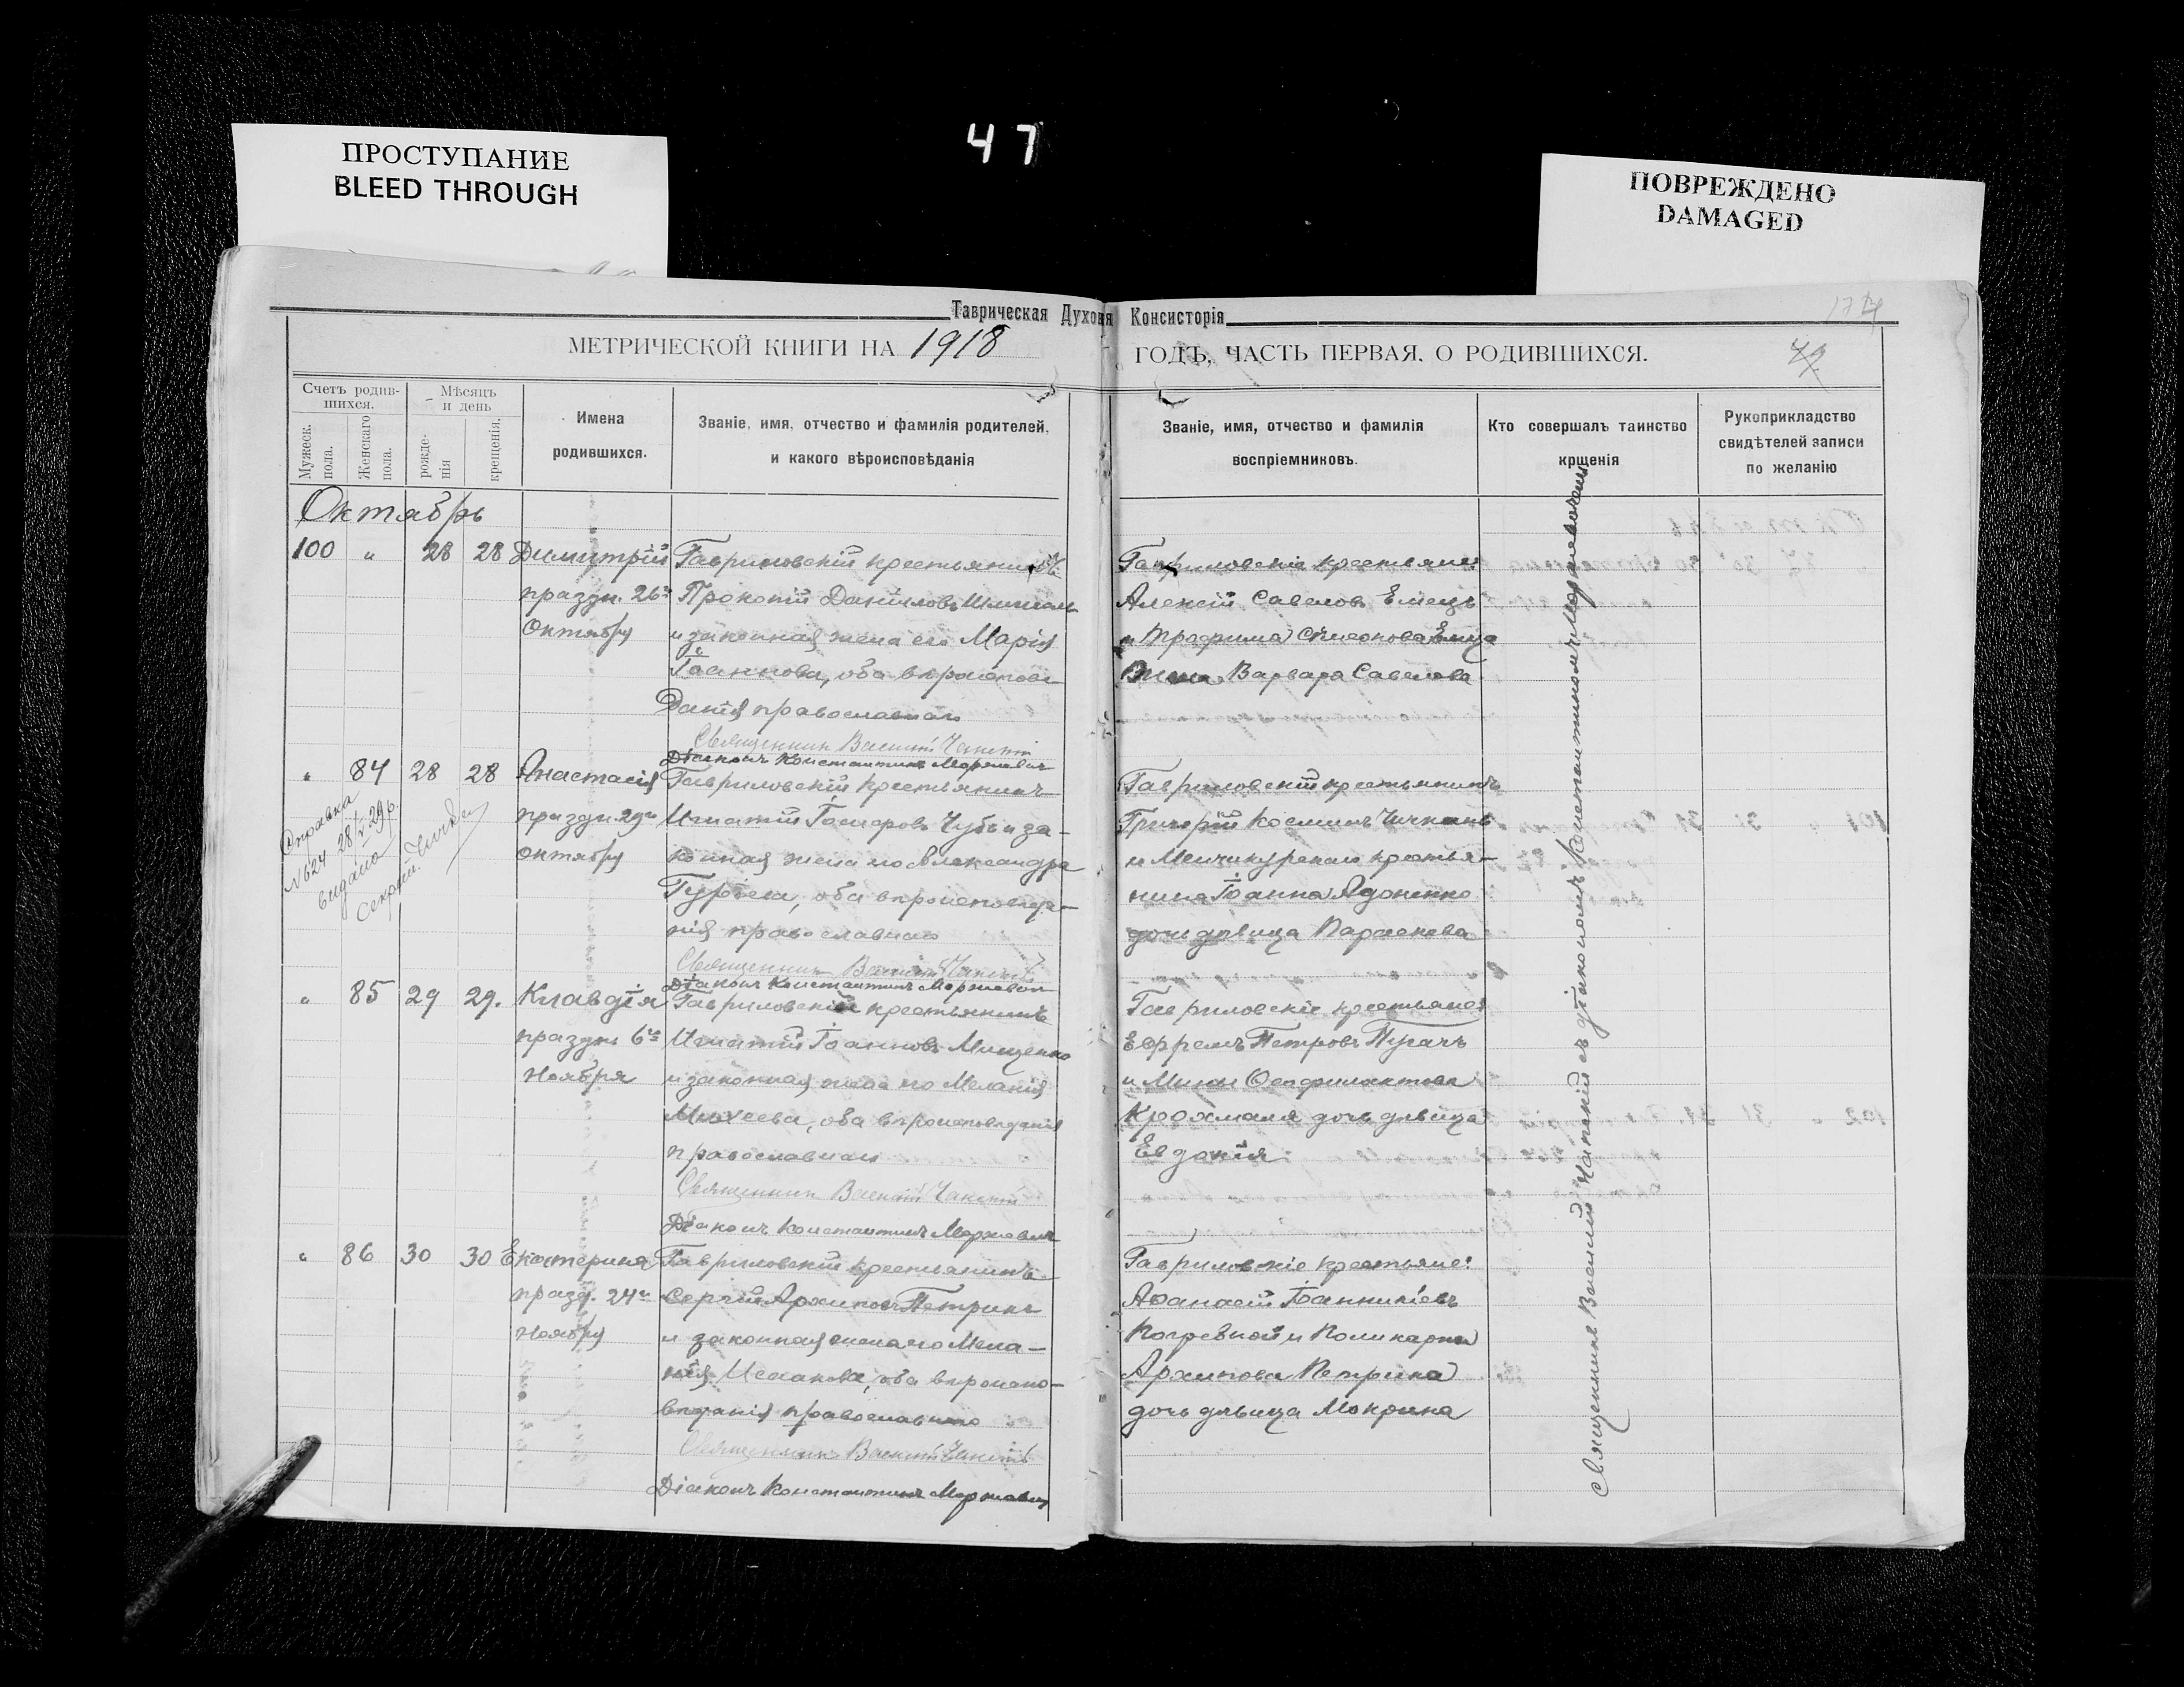 ПРОСТУПАНИЕ
BLEED THROUGH
47
ПОВРЕЖДЕНО
DAMAGED
Таврическая Духовня Консисторія
МЕТРИЧЕСКОЙ КНИГИ НА 1918
ГОДЪ, ЧАСТЬ ПЕРВАЯ. О РОДИВШИХСЯ.
Счетъ родив-
шихся.
Мужеск.
пола.
Женскаго
пола.
Мѣсяцъ
и день
рожде-
нія
крещенія.
Имена
родившихся.
Званіе, имя, отчество и фамилія родителей,
и какого вѣроисповѣданія
Званіе, имя, отчество и фамилія
воспріемниковъ.
Кто совершалъ таинство
крщенія
Рукоприкладство
свидѣтелей записи
по желанію
Октябрь
100 " 28 28 Димитрій
праздн. 26го
Октября
Гавриловскій крестьянинъ
Прокопій Даніиловъ
и законная жена его Марія
Іоаннова, оба вѣроисповѣ
данія православнаго
Священникъ Василій
Діаконъ Константинъ
Гавриловскіе крестьяне:
Алексій Савеловъ Емецъ
и Трофима Симеонова Емца
жена Варвара Савелова
" 84 28 28 Анастасія
праздн. 29го
октября
Гавриловскій крестьянинъ
Игнатій Чубъ и за-
конная жена его Александра
Гурьева, оба вѣроисповѣда-
нія православнаго
Священникъ Василій
Діаконъ Константинъ
Справка
№624 28/V 29 р.
видана
Секрет.
Гавриловскій крестьянинъ
Григорій Косминъ
и крестья-
нина Іоанна
дочь дѣвица Параскева
" 85 29 29. Клавдія
праздн. 6го
Ноября
Гавриловскій крестьянинъ
Игнатій Іоанновъ Мищенко
и законная жена его Меланія
Михеева, оба вѣроисповѣданія
православнаго
Священникъ Василій
Діаконъ Константинъ
Гавриловскіе крестьяне:
Ефремъ Петровъ Пугачъ
и Мины Феофилактова
Крохмаля дочь дѣвица
Евдокія
" 86 30 30 Екатерина
празд. 24го
Ноября
Гавриловскій крестьянинъ
Сергій Архиповъ Петрикъ
и законная жена его Мела-
нія Исаакова, оба вѣроиспо-
вѣданія православнаго
Священникъ Василій
Діаконъ Константинъ
Гавриловскіе крестьяне:
Афанасій Іоанникіевъ
Погребной и Поликарпа
Архипова Петрика
дочь дѣвица Мокрина
Священникъ Василій съ діакономъ Константиномъ